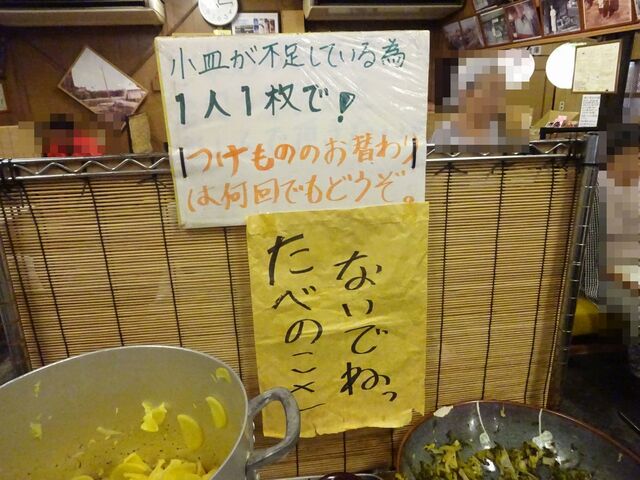 小皿が不足している為
1人1枚で!
つけもののお替わり
は何回でもどうぞ。
たべのこさ
ないでねっ